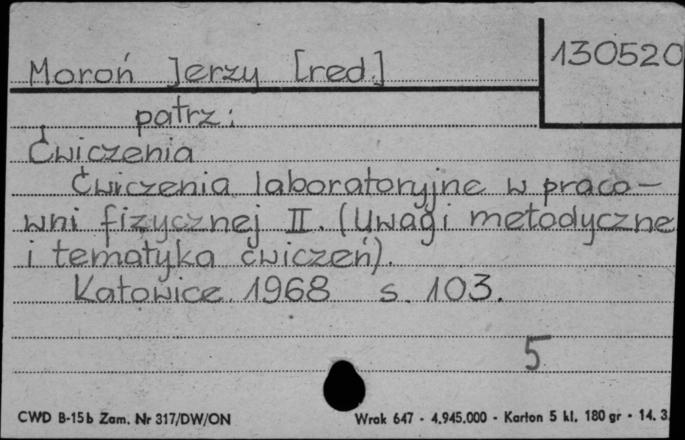 Moroń Jerzy [red.]
130520
patrz:
Ćwiczenia
Ćwiczenia laboratoryjne w praco-
wni fizycznej II. (Uwagi metodyczne
i tematyka ćwiczeń).
Katowice 1968 s. 103.
5
CWD B-15b Zam. Nr 317/DW/ON
Wrak 647 - 4.945.000 - Karton 5 kl. 180 gr - 14. 3.